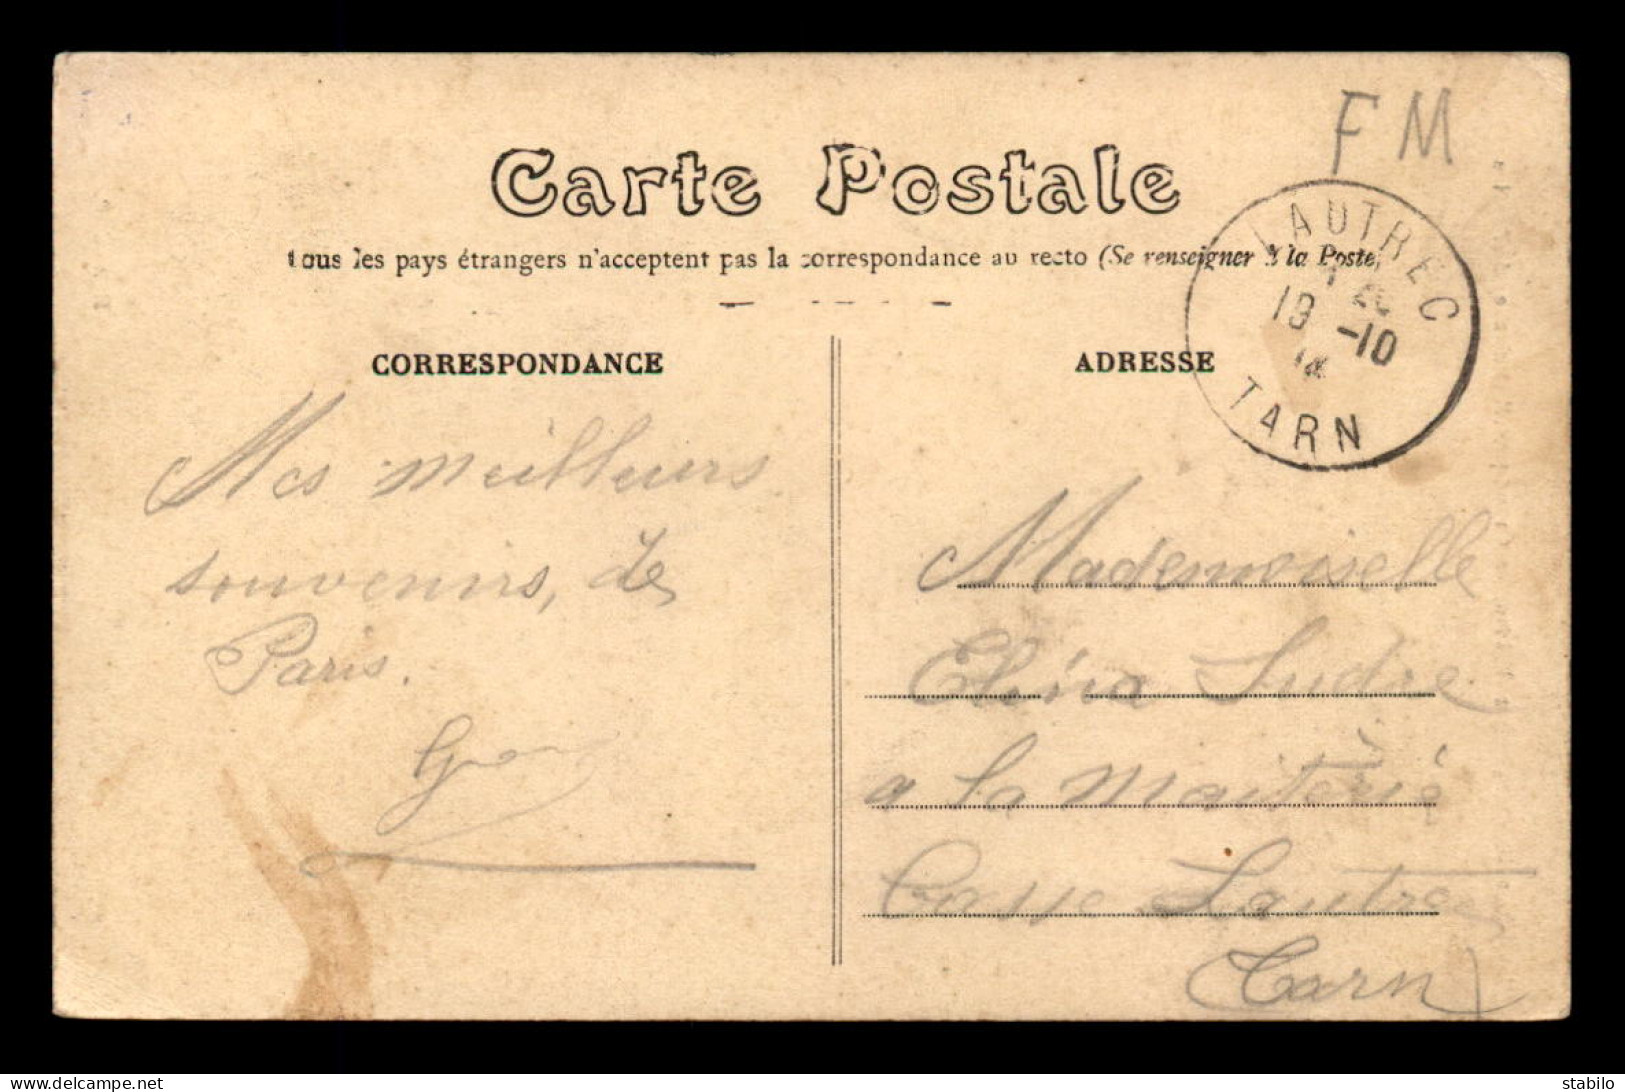 F M
Carte Postale
tous les pays étrangers n'acceptent pas la correspondance au recto (Se renseigner à la Poste)
LAUTREC
19 -10
14
TARN
CORRESPONDANCE
ADRESSE
Mes meilleurs
souvenirs, de
Paris.
Mademoiselle
Sudre
a la
Lautrec
Tarn
delcampe.net
stabilo